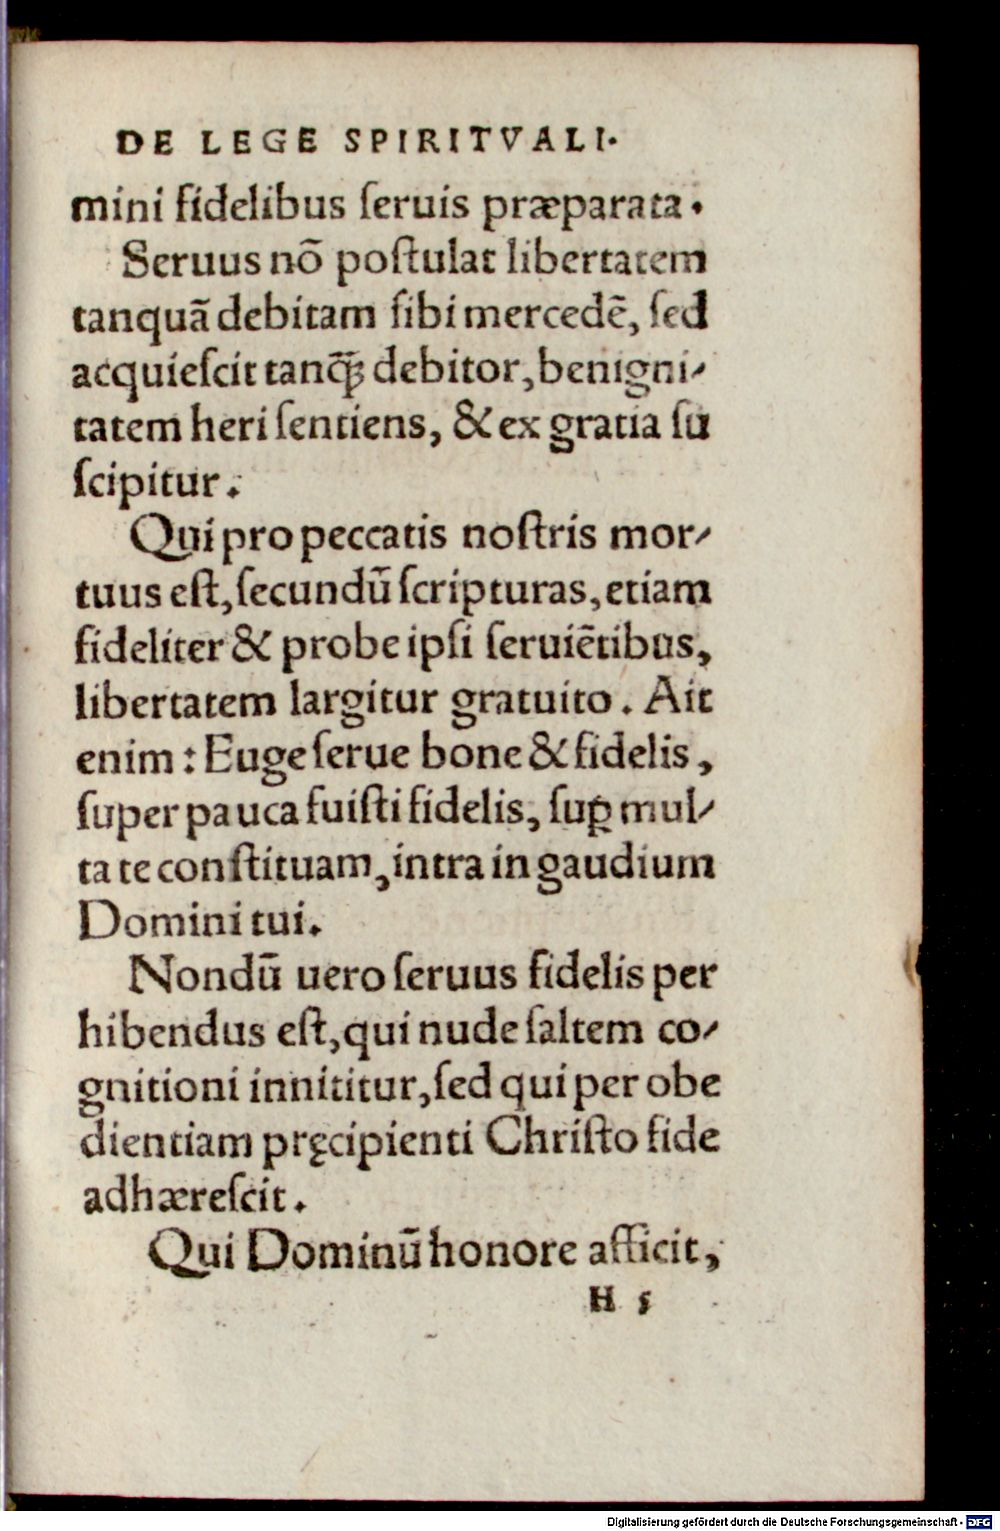 DE LEGE SPIRITVALI.
mini fidelibus ſeruis præparata.
Seruus nō poſtulat libertatem
tanquā debitam ſibi mercedē, ſed
acquieſcit tanq̄ꝫ debitor, benigni-
tatem heri ſentiens, & ex gratia ſu
ſcipitur.
Qui pro peccatis noſtris mor-
tuus eſt, ſecundū ſcripturas, etiam
fideliter & probe ipſi ſeruiētibus,
libertatem largitur gratuito. Ait
enim: Euge ſerue bone & fidelis,
ſuper pauca fuiſti fidelis, ſuꝑ mul-
ta te conſtituam, intra in gaudium
Domini tui.
Nondū uero ſeruus fidelis per
hibendus eſt, qui nude ſaltem co-
gnitioni innititur, ſed qui per obe
dientiam pręcipienti Chriſto fide
adhæreſcit.
Qui Dominū honore afficit,
H 5
Digitalisierung gefördert durch die Deutsche Forschungsgemeinschaft - DFG